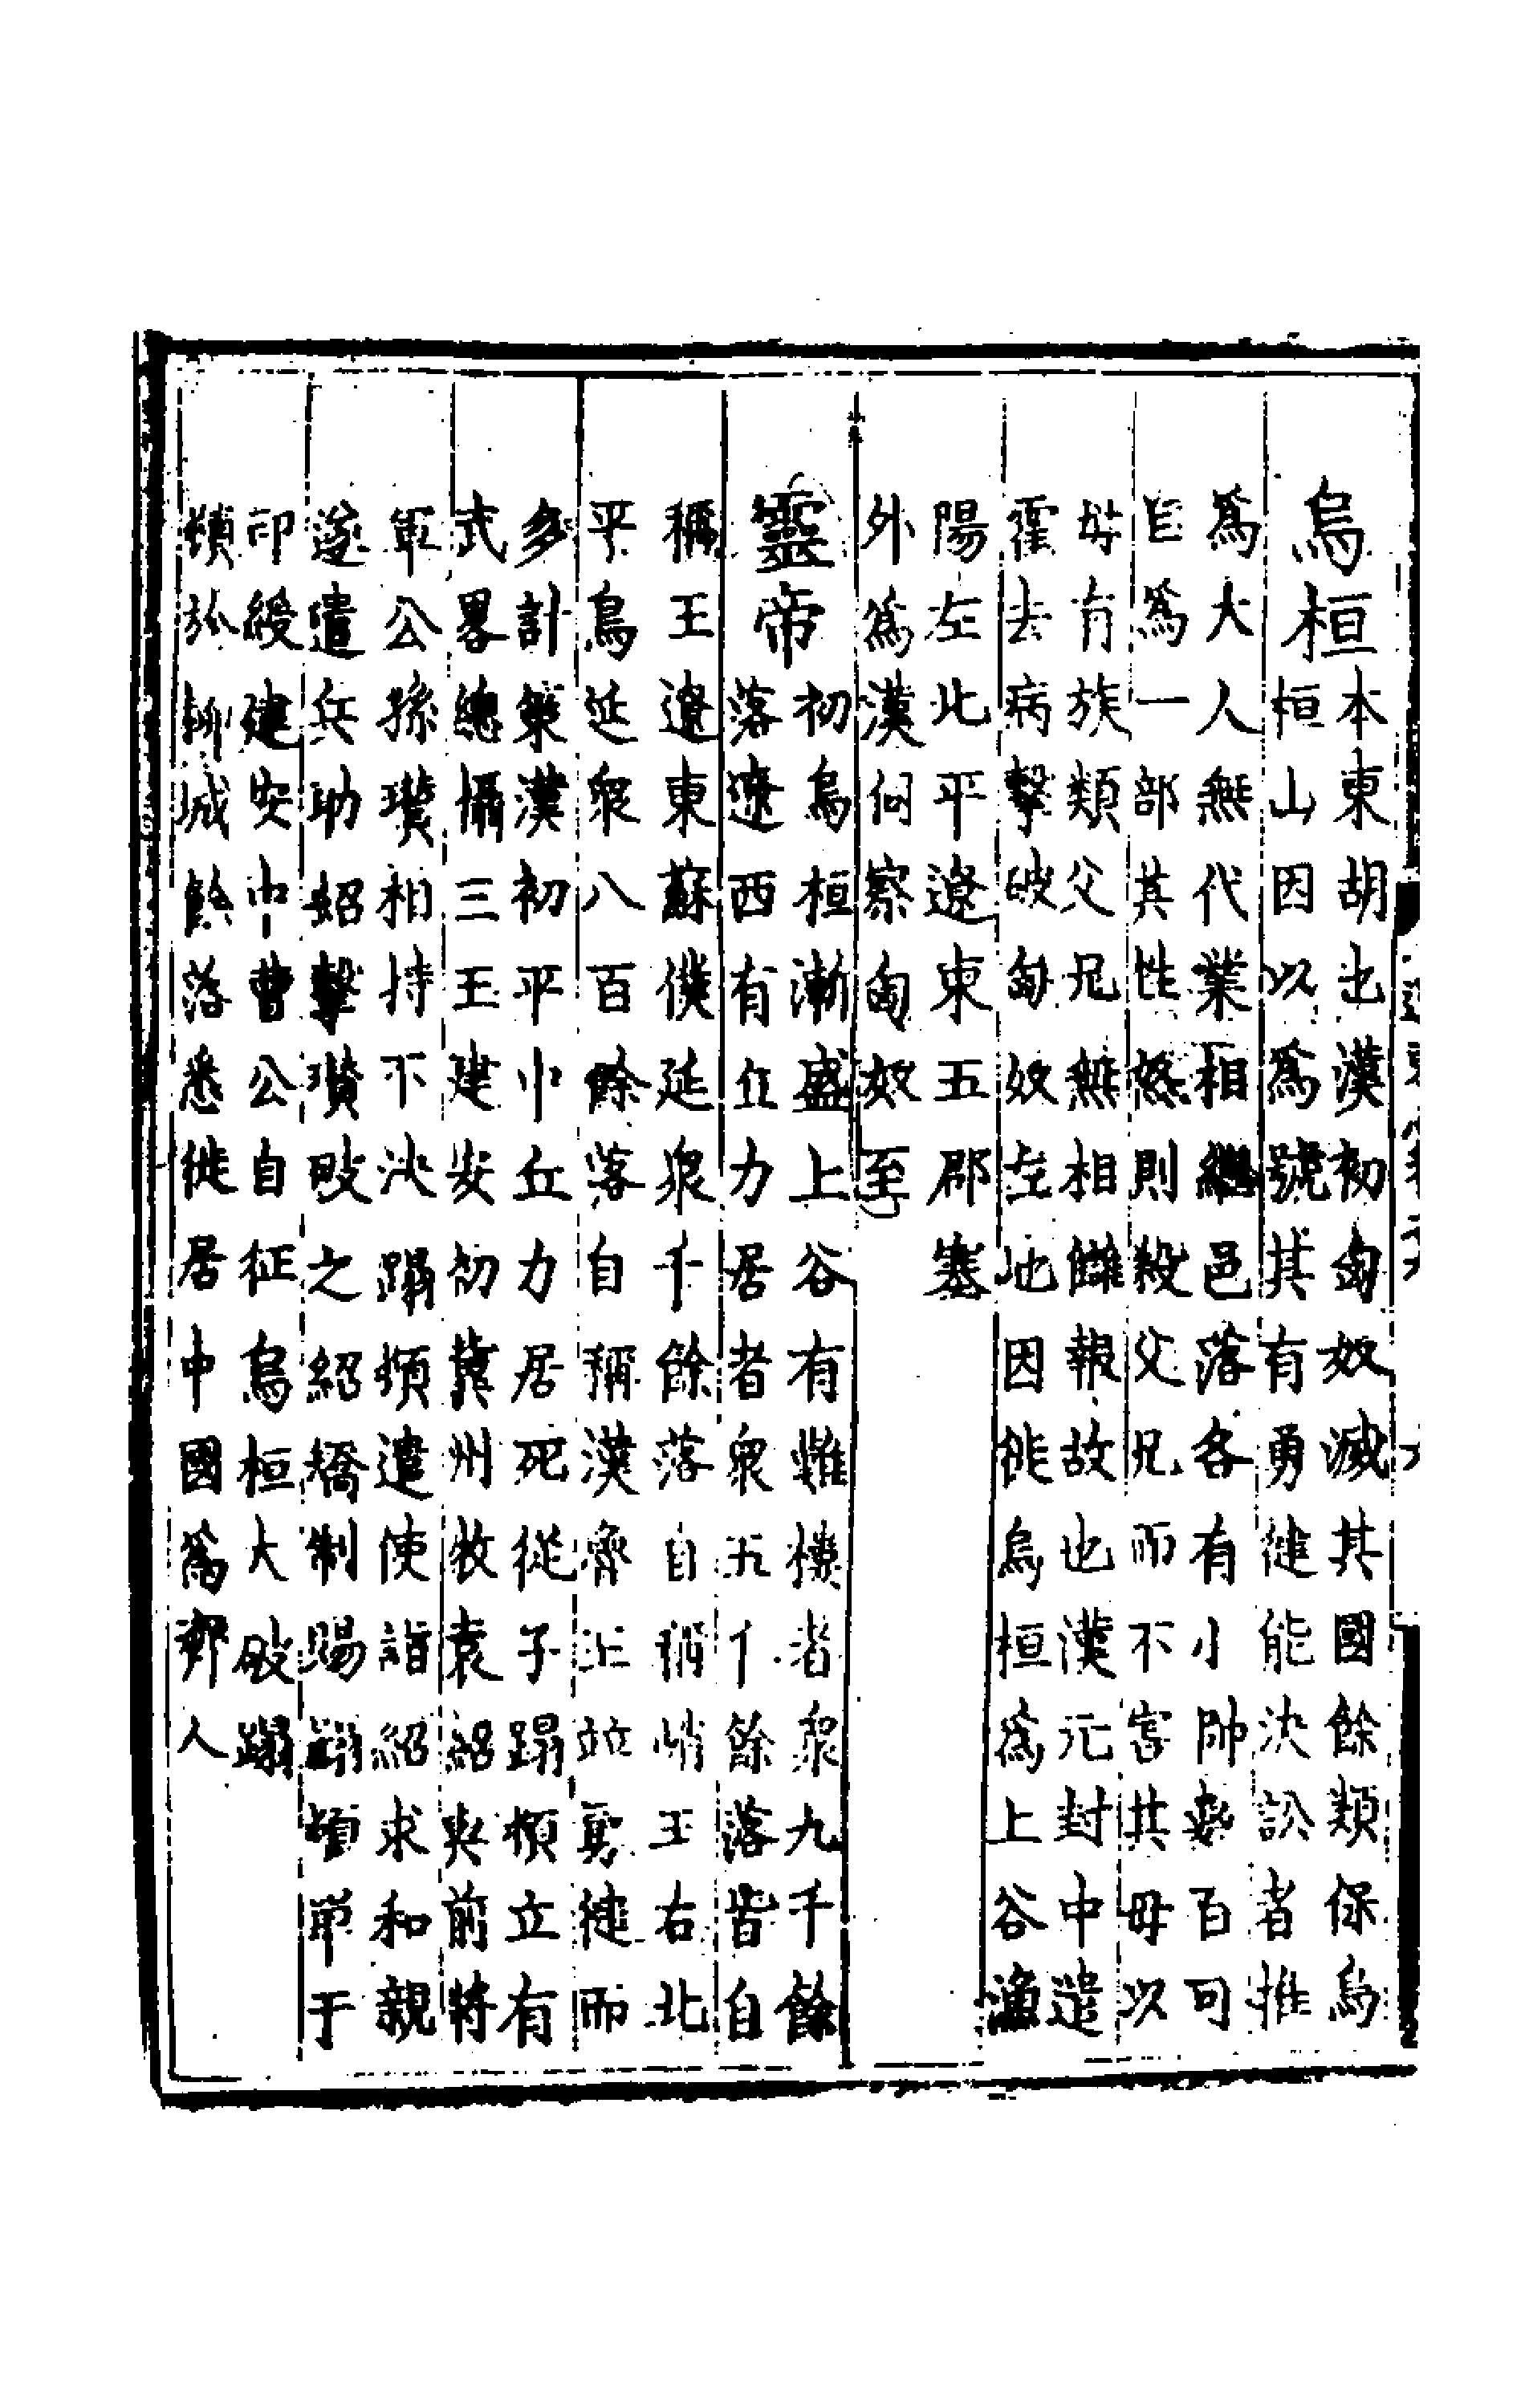 烏桓
本東胡也漢初匈奴滅其國餘類保烏
桓山因以為號其有勇健能決訟者推
為大人無代業相繼邑落各有小帥數百
自為一部其性怒則殺父兄而不害其母以
母有族類父兄無相讎報故也漢元封中遣
霍去病擊破匈奴左地因徙烏桓為上谷漁
陽左北平遼東五郡塞
外為漢伺察匈奴至
靈帝
初烏桓漸盛上谷有難樓者衆九千餘
落遼西有丘力居者衆五千餘落皆自
稱王遼東蘇僕延衆千餘落自稱峭王右北
平烏延衆八百餘落自稱漢魯王並勇健而
多計策漢初平中丘力居死從子蹋頓立有
武畧總攝三王建安初冀州牧袁紹與前將
軍公孫瓚相持不決蹋頓遣使詣紹求和親
遂遣兵助紹擊瓚破之紹矯制賜蹋頓單于
印綬建安中曹公自征烏桓大破蹋
頓於柳城餘落悉徙居中國為鄉人